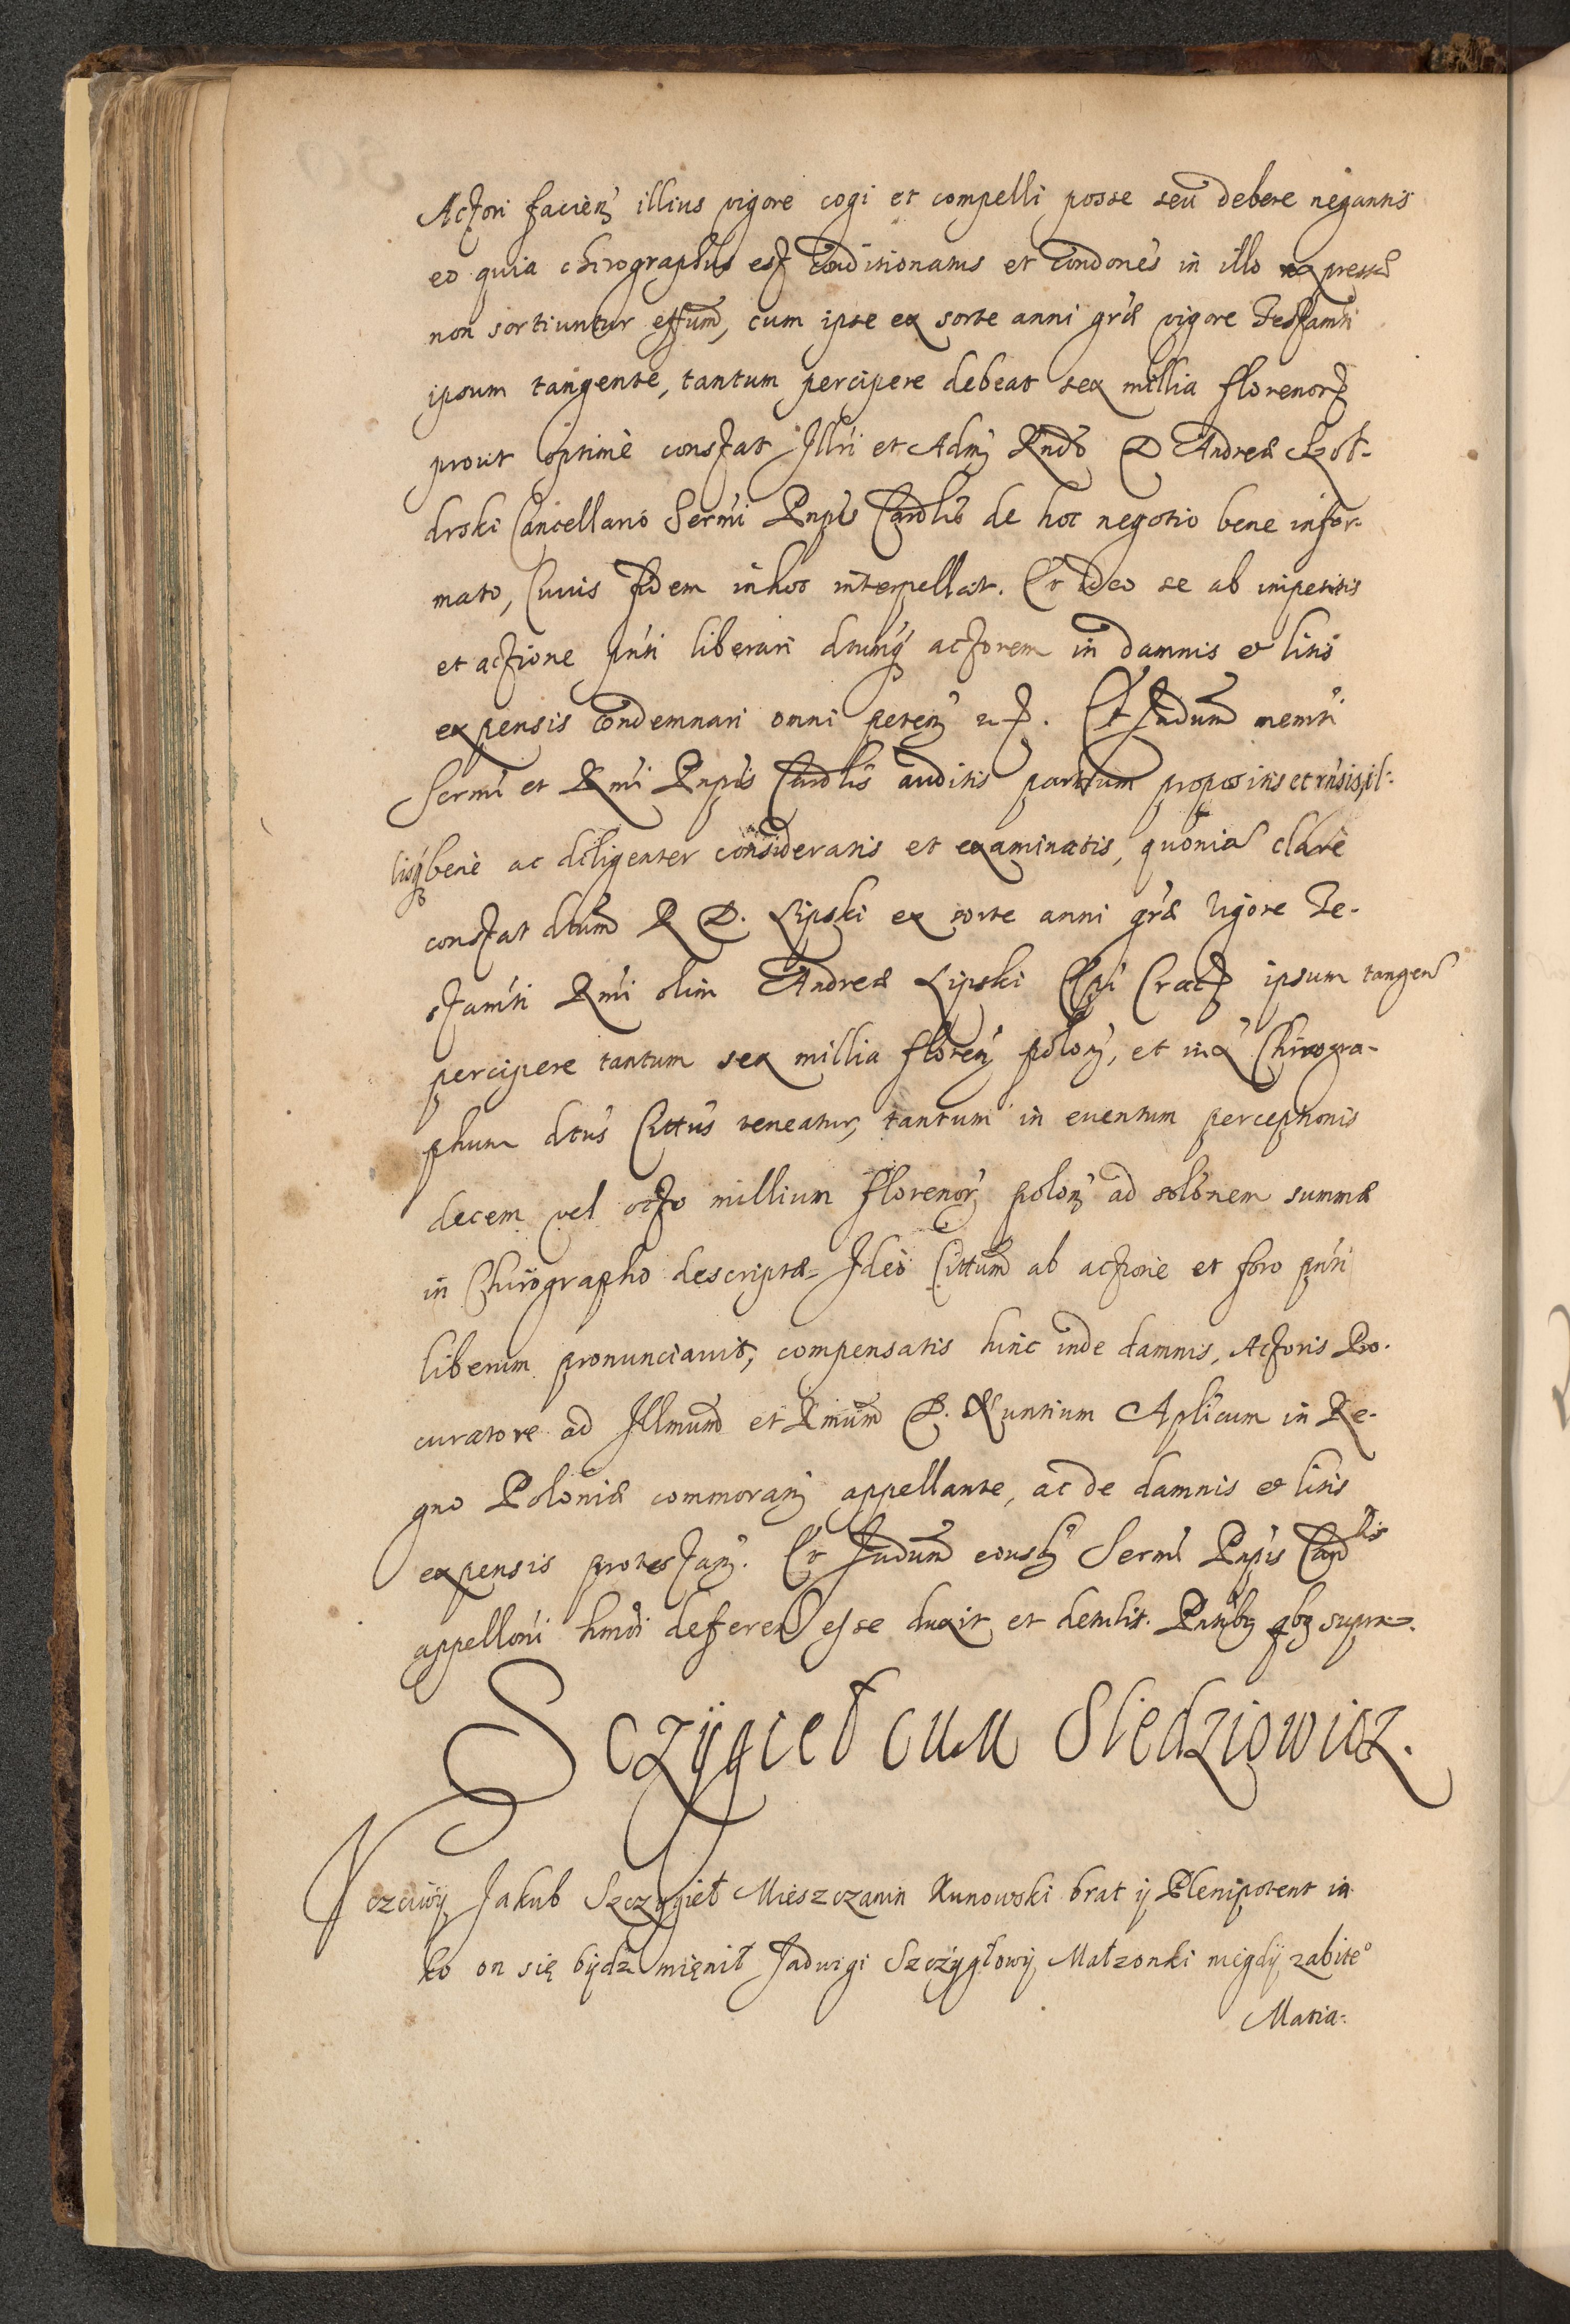 Actori facien illius vigore cogi et compelli posse seu debere negantis
eo quia chirographus est conditionatus et condones in illo expressæ
non sortiuntur effum, cum ipse ex sorte anni græ vigore Testamti
ipsum tangente, tantum percipere debeat sex millia florenor
prout optime constat Illri et Adm Rndo D Andreæ Szoł-
drski Cancellario Sermi Pnpis Cardlis de hoc negotio bene infor-
mato, Cuius fidem in hoc interpellat. Et ideo se ab impetitis
et actione pnti liberari dtumq actorem in damnis et litis
expensis condemnari omni peten
Sermi et Rmi Pnpis Cardlis auditis partium propositis et rnsis, il-
lisq bene ac diligenter consideratis et examinatis, quonia clare
constat dtum R D. Lipski ex sorte anni græ vigore Te-
stamti Rmi olim Andreæ Lipski Epi Crac ipsum tangen
percipere tantum sex millia floren polon, et iuxa Chirogra-
phum dtus Cittus teneatur, tantum in euentum perceptionis
decem vel octo millium florenor polon ad solunem summæ
in Chirographo descriptæ Ideo Cittum ab actione et foro pnti
liberum pronunciauit, compensatis hinc inde damnis, Actoris Pro-
curatore ad Illmum et Rmum D. Nuntium Aplicum in Re-
gno Poloniæ commoran appellante, ac de damnis et litis
expensis protestan. Et Judum eiusd Sermi Pnpis Cardlis
appelloni hmoi deferend esse duxit et detulit. Pntibz qbz supra.
Sczygieł cum Sledziowicz.
Vczciwÿ Jakub Szczygieł Mieszczanin Kunowski brat ÿ Plenipotent ia-
ko on się bÿdz mięnił Jadwigi Szczygłowÿ Małzonki niegdÿ zabite°
Matia-